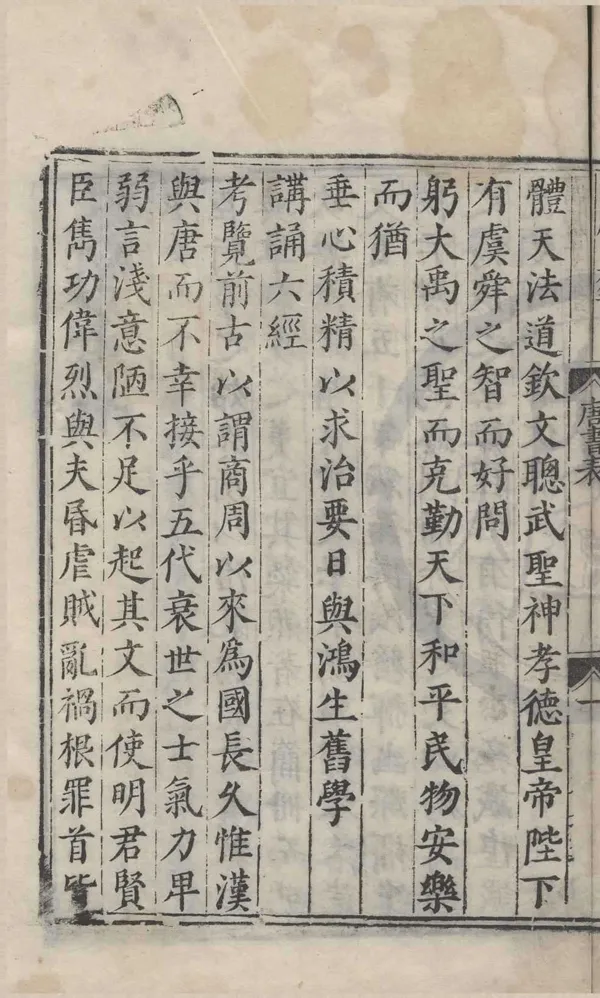 唐書表
一
體天法道欽文聰武聖神孝德皇帝陛下
有虞舜之智而好問
躬大禹之聖而克勤天下和平民物安樂
而猶
垂心積精以求治要日與鴻生舊學
講誦六經
考覽前古以謂商周以來爲國長久惟漢
與唐而不幸接乎五代衰世之士氣力卑
弱言淺意陋不足以起其文而使明君賢
臣雋功偉烈與夫昬虐賊亂禍根罪首皆